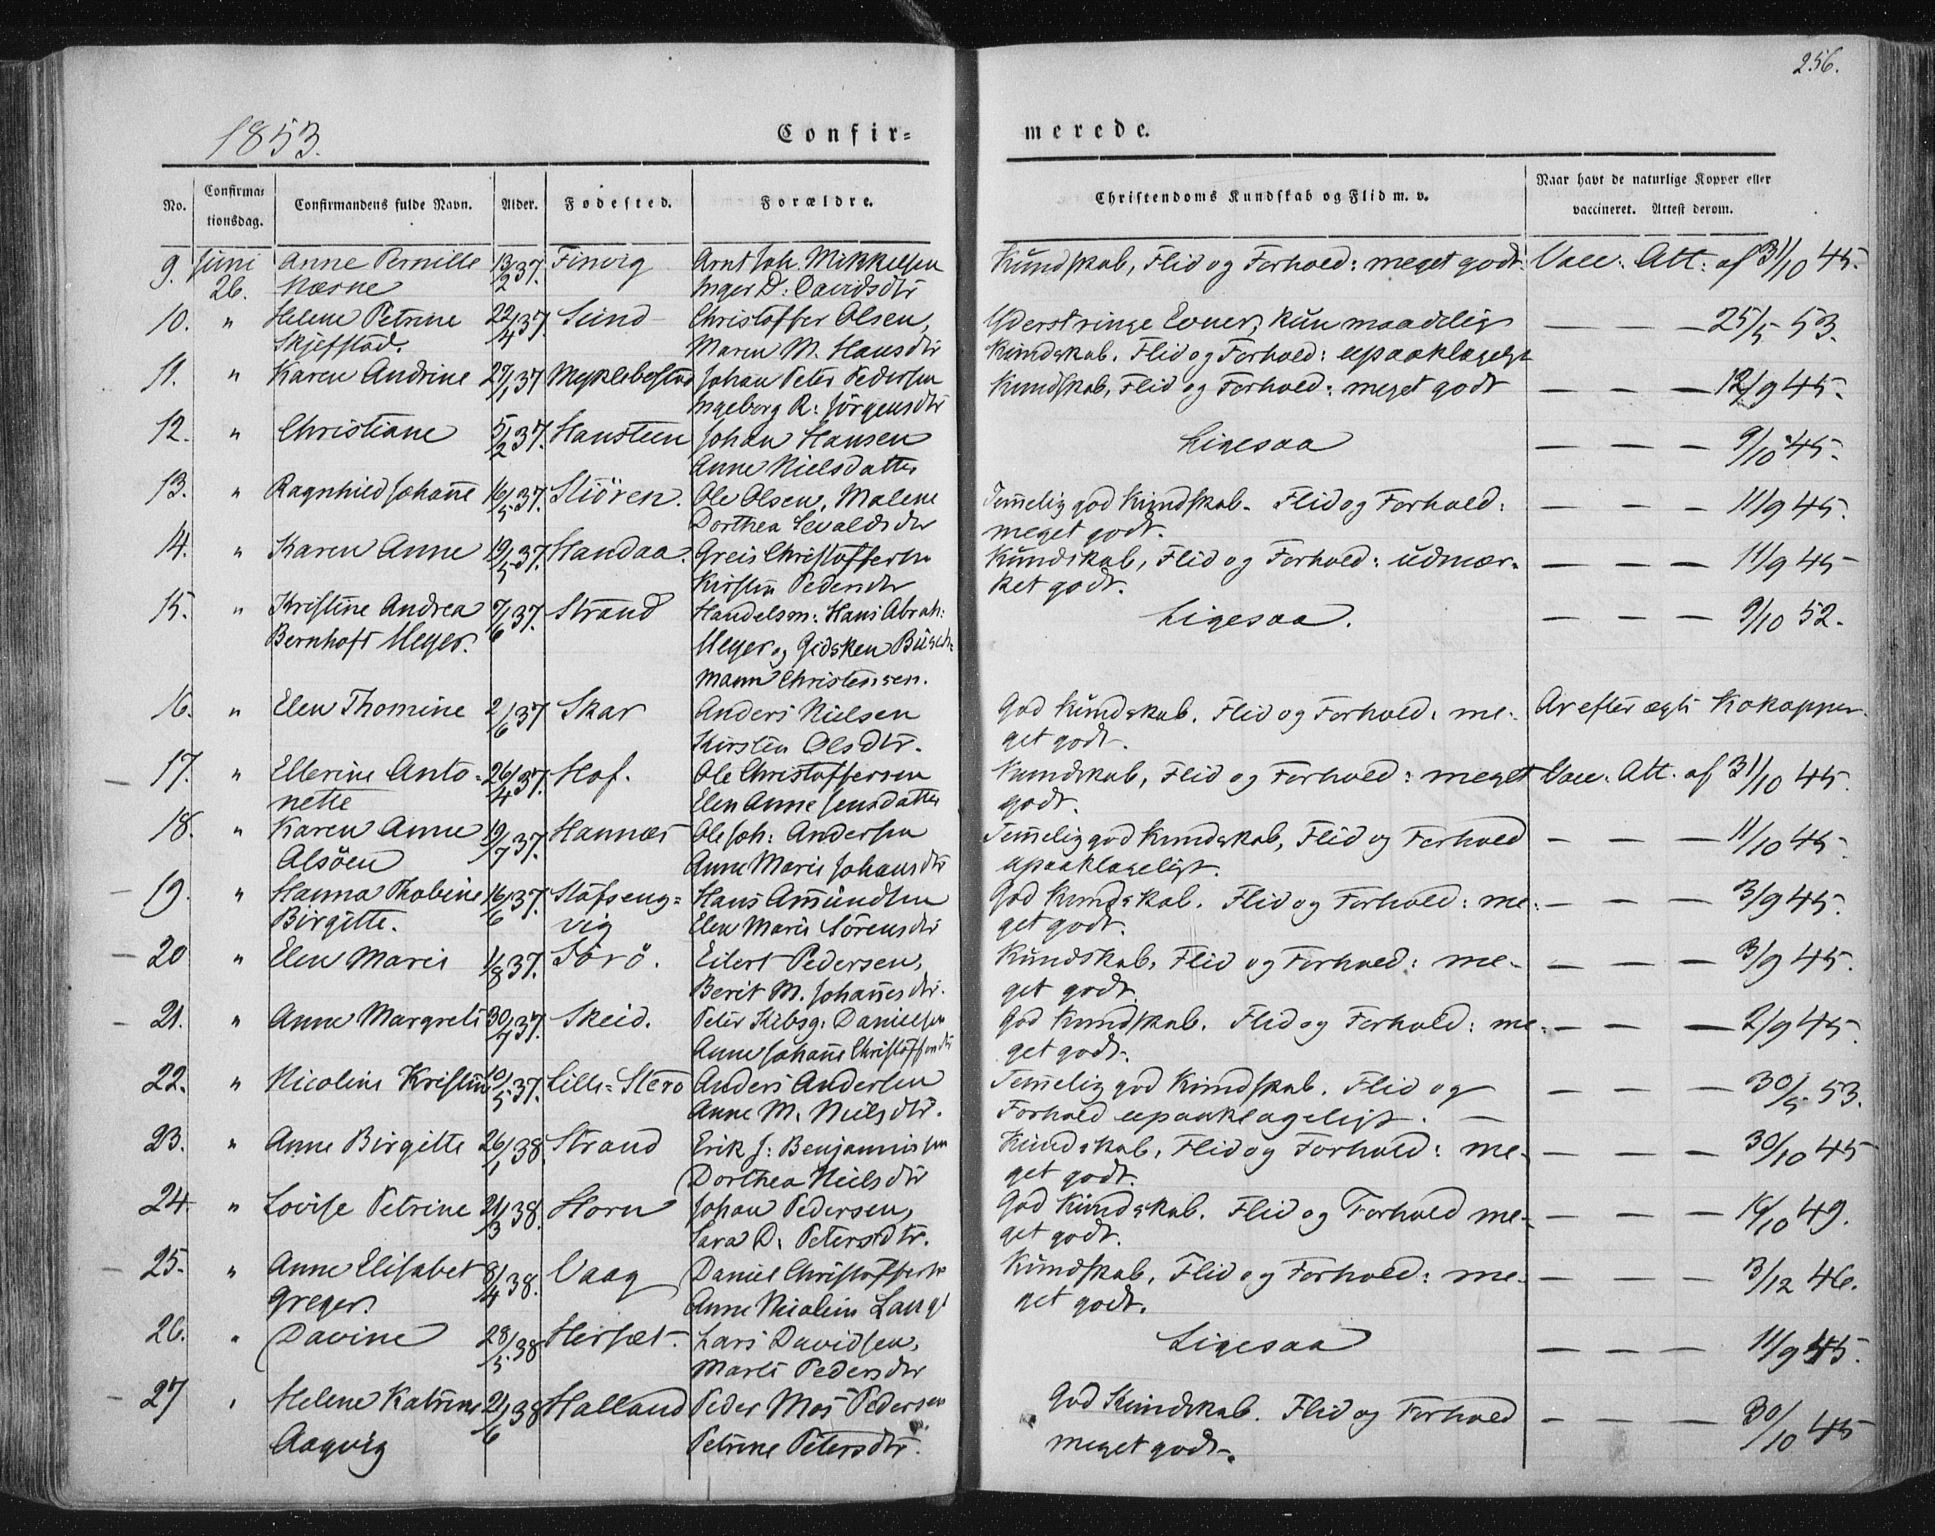 256.
1853.
Confir= merede.
No. Confirma= tionsdag. Confirmandens fulde Navn. Alder. Fødested. Forældre. Christendoms Kundskab og Flid m. v. Naar havt de naturlige Kopper eller vaccineret. Attest derom.
9. Juni Anne Pernille 13/2 37. Finvig Arnt Joh. Mikkelsen Kundskab, Flid og Forhold: meget godt. Vacc. Att. af 31/10 45.
26. Næsne Inger D: Davidsdtr
10. " Helene Petrine 22/4 37. Sund Christoffer Olsen, Yderst ringe Evner, kun maadelig — — — 25/5 53.
Skjefstad. Maren M. Hansdtr Kundskab. Flid og Forhold: upaaklageligt
11. " Karen Andrine 27/1 37 Myklebostad Johan Peter Pedersen Kundskab, Flid og Forhold: meget godt — — — 12/9 45.
Ingeborg R: Jörgensdtr
12. " Christiane 5/2 37. Hansteen Johan Hansen Ligesaa — — — 9/10 45.
Anne Nielsdatter
13. " Ragnhild Johañe 16/5 37. Stiören. Ole Olsen, Malene Temelig god Kundskab. Flid og Forhold: — — — 11/9 45.
Dorthea Sevaldsdtr meget godt.
14. " Karen Anne 19/5 37. Handaa. Greis Christoffersen Kundskab, Flid og Forhold: udmær- — — — 11/9 45
Kirsten Pedersdtr ket godt.
15. " Kristine Andrea 7/6 37. Strand Handelsm: Hans Abrah: Ligesaa. — — — 9/10 52.
Bernhoft Meyer. Meyer og Gidsken Busch-
mann Christensen.
16. " Elen Thomine 2/6 37 Skar Anders Nielsen God Kundskab. Flid og Forhold: me- Ar efter ægte Kokopper.
Kirsten Olsdtr. get godt.
17. " Ellerine Anto- 26/4 37. Hof. Ole Christoffersen Kundskab, Flid og Forhold: meget Vacc. Att. af 31/10 45.
nette Elen Anne Jensdatter godt.
18. " Karen Anne 19/7 37. Hannæs Ole Joh: Andersen Temelig god Kundskab, Flid og Forhold — — — 11/10 45.
Alsöen Anne Marie Johansdtr upaaklageligt.
19. " Hanna Thobine 16/6 37. Stofseng= Hans Amundsen God Kundskab. Flid og Forhold: me- — — — 3/9 45.
Birgitte. vig Elen Marie Sörensdtr get godt.
20 " Elen Marie 1/8 37. Törö. Eilert Pedersen, Kundskab, Flid og Forhold: me- — — — 3/9 45.
Berit M. Johañesdtr. get godt.
21. " Anne Margrete 30/7 37. Skeid. Peter Kibsg: Danielsen God Kundskab. Flid og Forhold: me- — — — 2/9 45.
Anne Johañe Christoffersdtr get godt.
22. " Nicoline Kristine 10/5 37. Lille=Sterö Anders Andersen Temelig god Kundskab. Flid og — — — 30/5 53.
Anne M. Nielsdtr. Forhold upaaklageligt. —
23. " Anne Birgitte 26/1 38. Strand Erik J: Benjaminsen Kundskab, Flid og Forhold: me- — — — 30/10 45
Dorthea Nielsdtr get godt.
24. " Lovise Petrine 21/3 38. Horn Johan Pedersen, God Kundskab. Flid og Forhold me- — — — 16/10 49.
Sara D: Petersdtr. get godt.
25. " Anne Elisabet 8/4 38. Vaag Daniel Christoffersen Kundskab, Flid og Forhold: me- — — — 3/12 46.
Greger. Anne Nicoline Lange get godt.
26. " Davine 28/5 38 Hersæt. Lars Davidsen, Ligesaa — — — 11/9 45.
Marte Pedersdtr
27 " Helene Katrine 21/6 38 Halland Peder Mos Pedersen God Kundskab. Flid og Forhold — — — 30/10 45
Aagvig Petrine Petersdtr. meget godt.